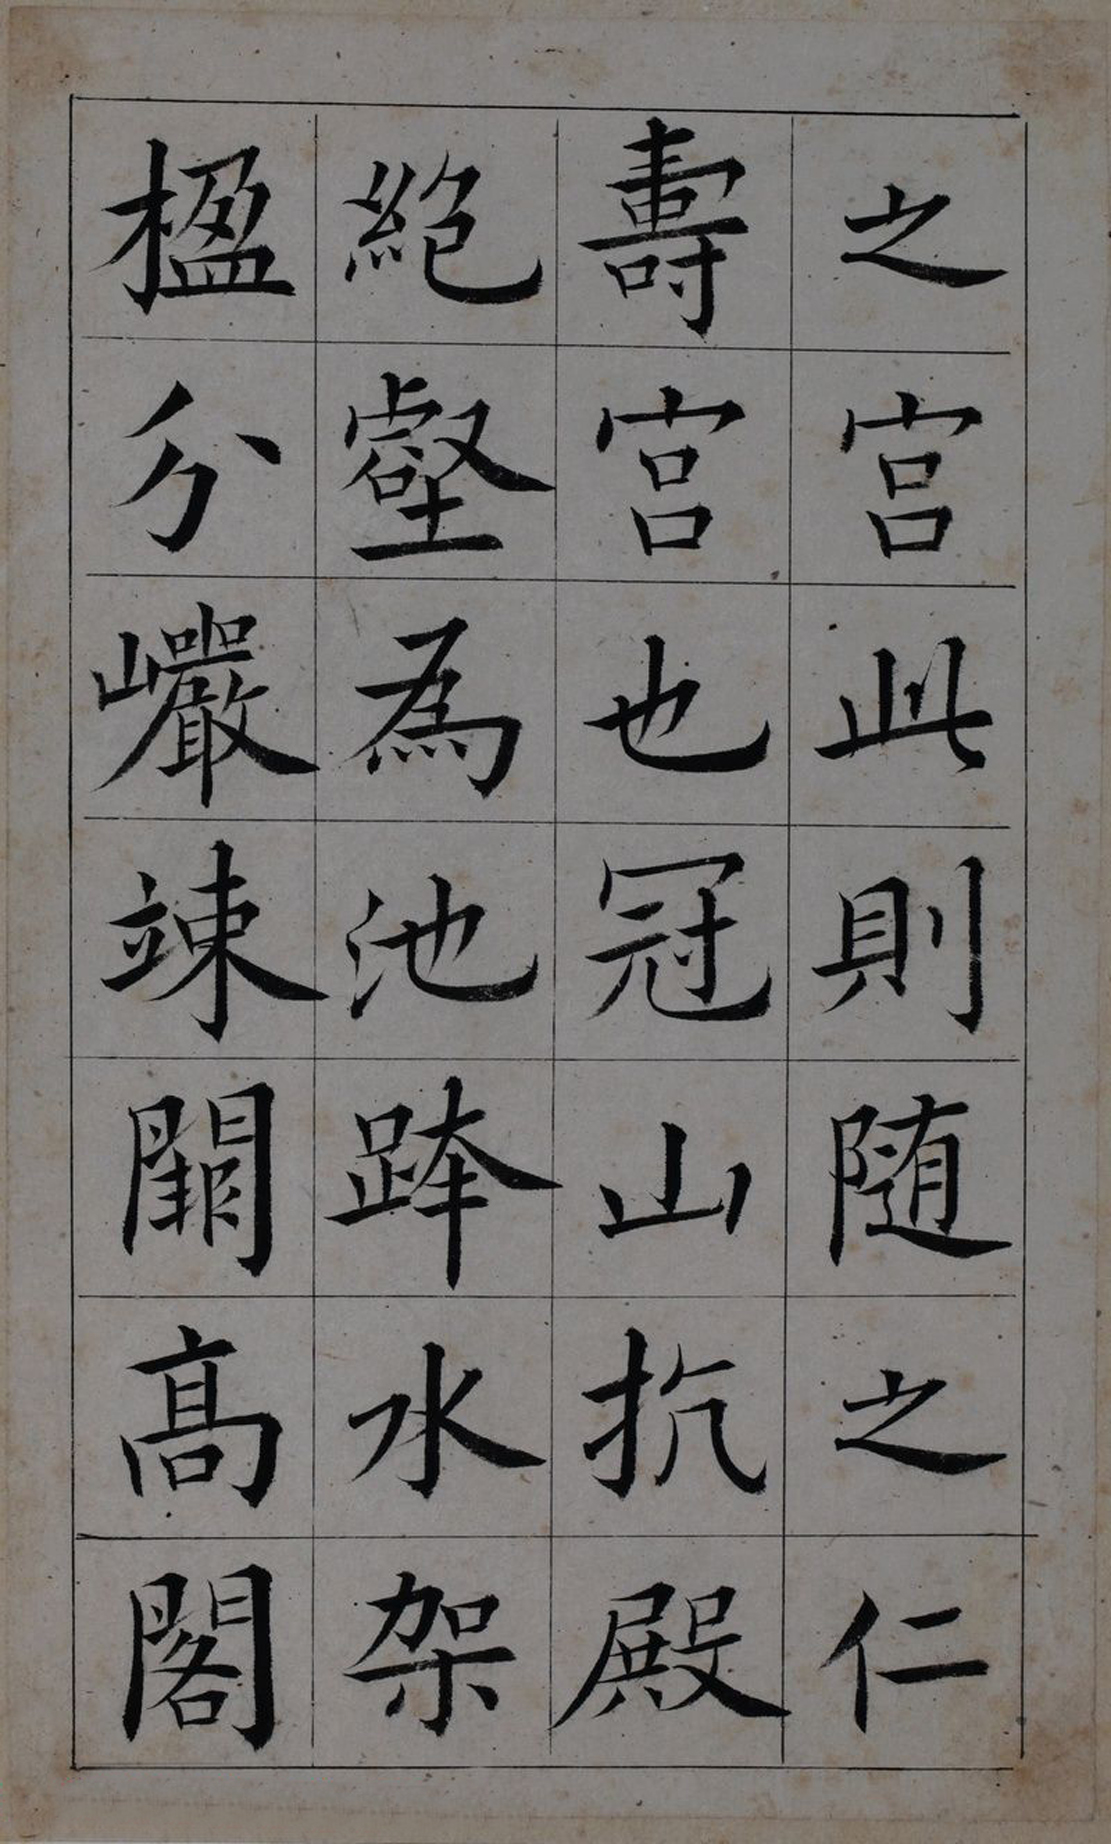 之宮此則随之仁
壽宮也冠山抗殿
絶壑為池跨水架
楹分巖竦闕髙閣